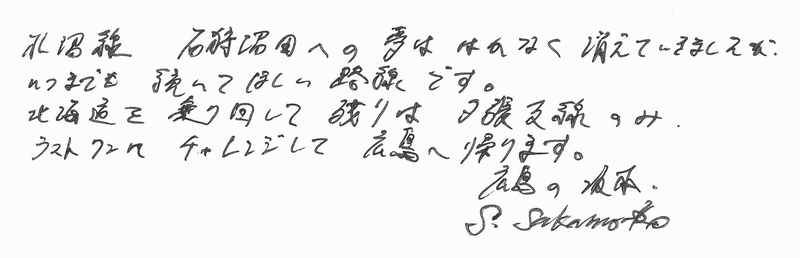 札沼線 石狩沼田への夢は はかなく 消えていきましたが、
いつまでも 続いてほしい 路線です。
北海道を 乗り回して 残りは 夕張支線のみ.
ラストランに チャレンジして 広島へ 帰ります。
広島の 坂本.
S. Sakamoto